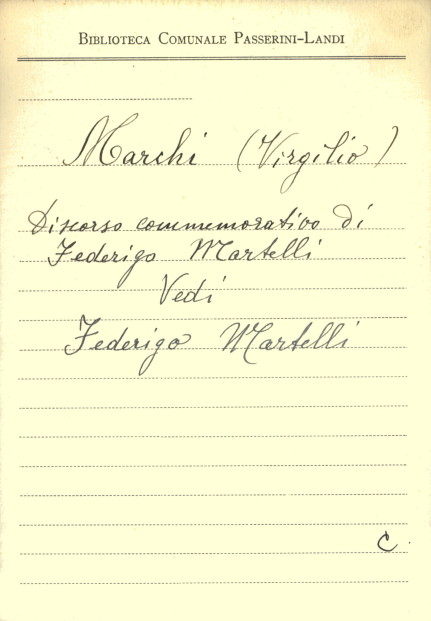 BIBLIOTECA COMUNALE PASSERINI-LANDI
Marchi (Virgilio)
Discorso commemorativo di
Federigo Martelli
Vedi
Federigo Martelli
C.